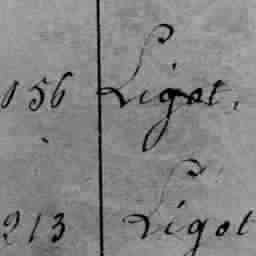 156 Ligot.
213 Ligot